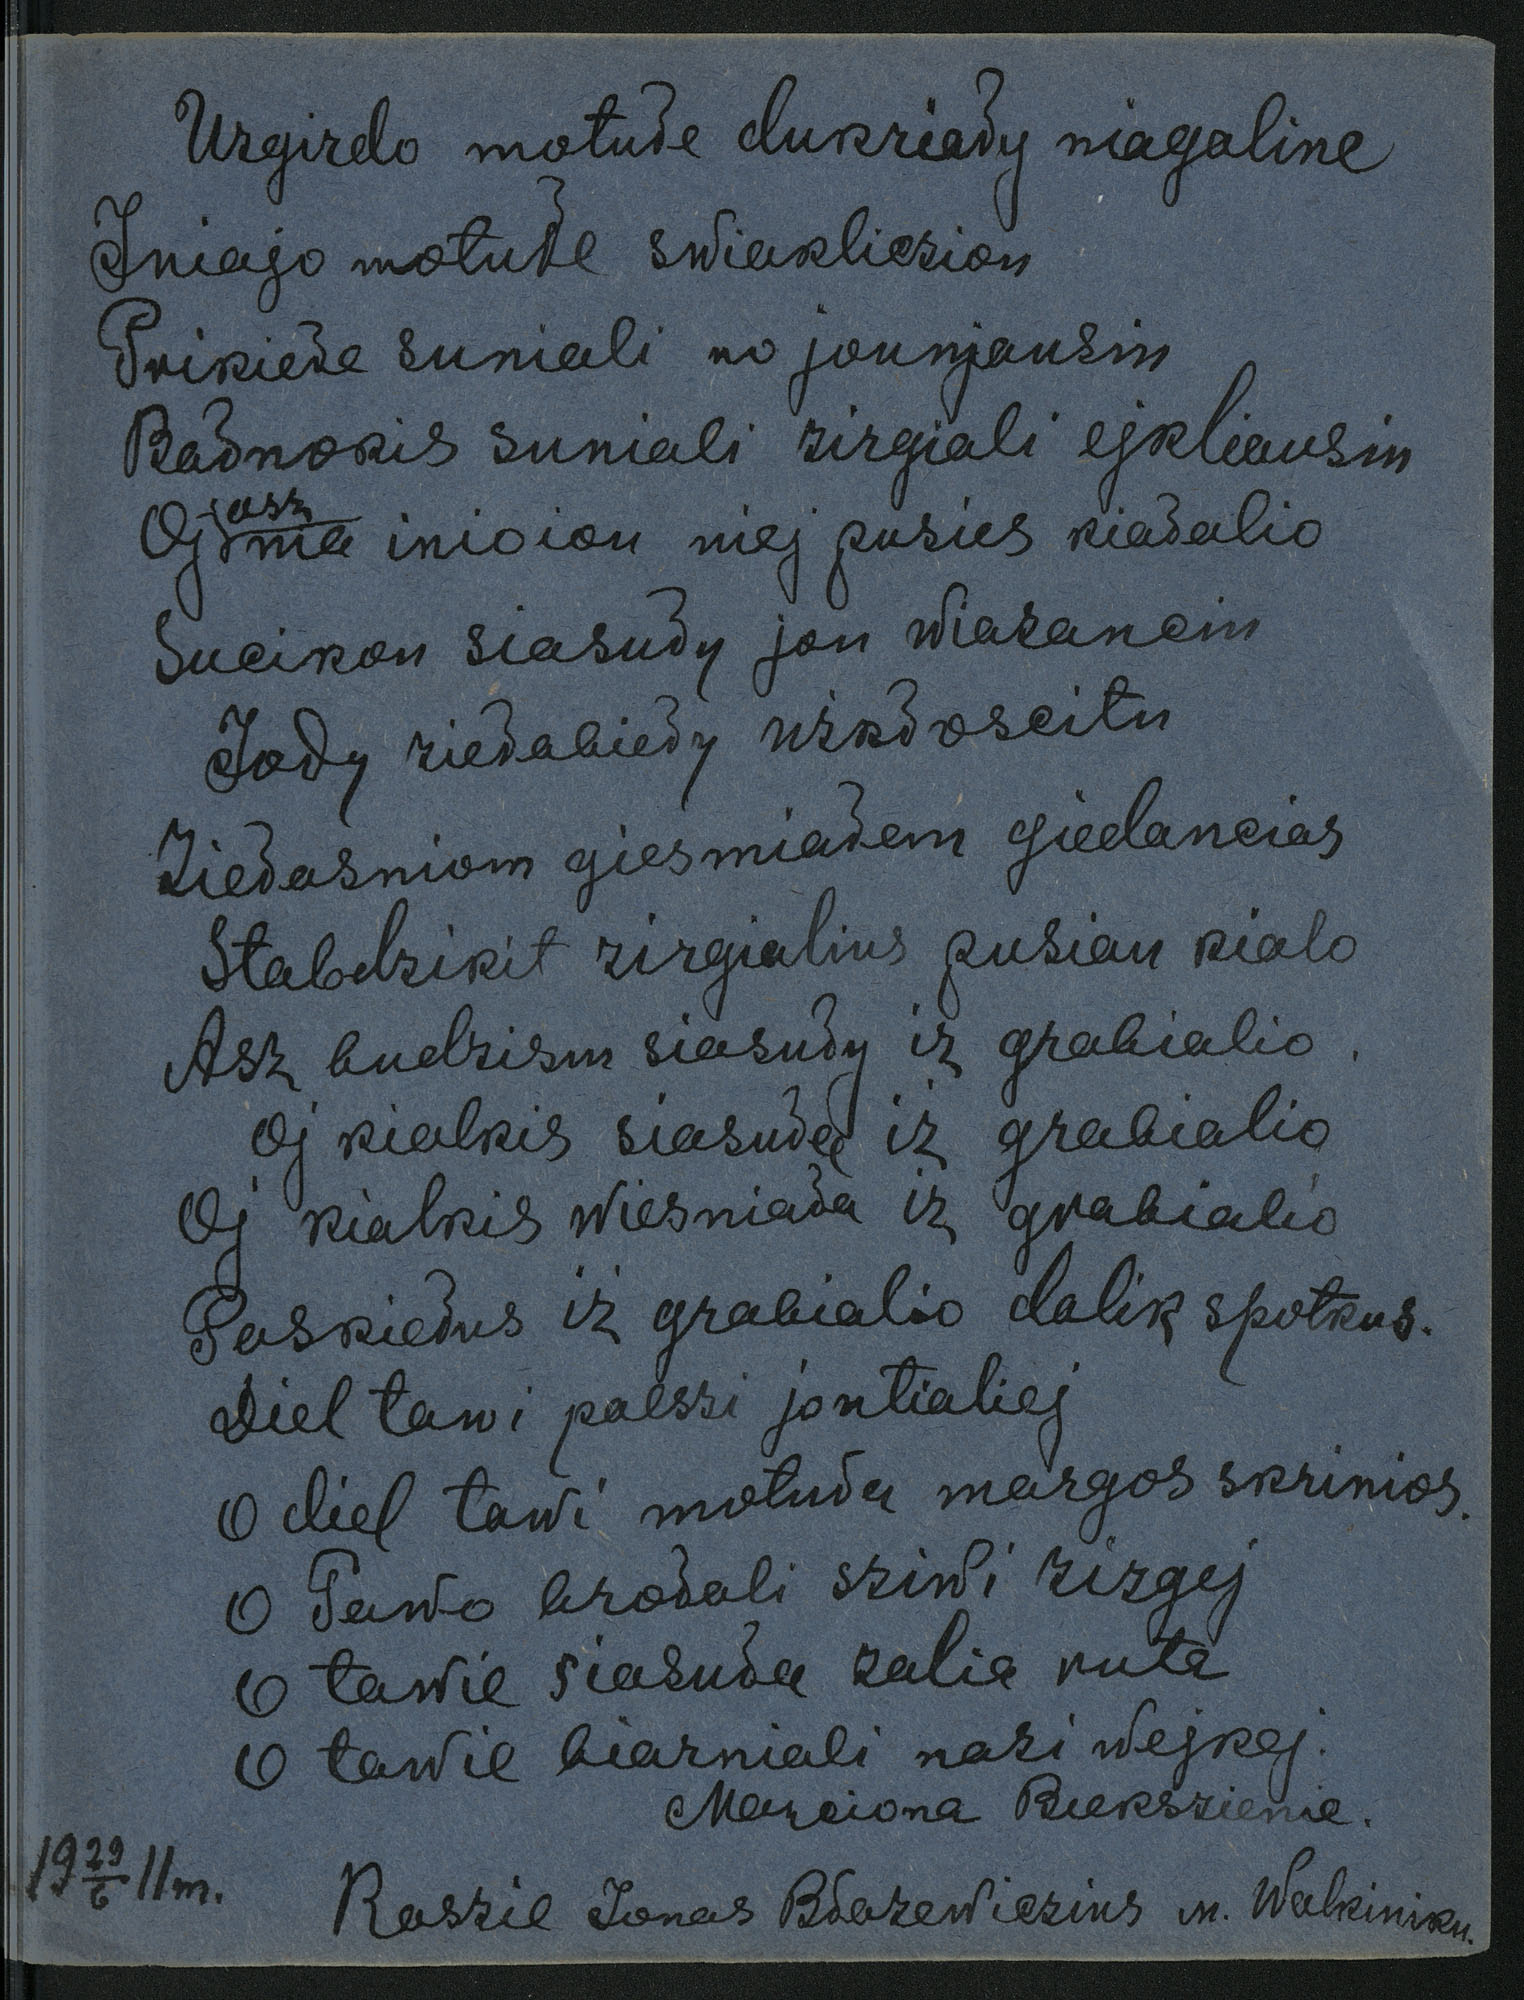 Uzgirdo motułe dukriały niagaline
Iniajo motułe swiakliczion
Prikiełe suniali no jounjausin
Bałnokis suniali zirgiali ejkliausin
Oj jasz ma inioion niej pusies kiałalio
Sucikon siasuły jon wiazancin
Jody ziełabiedy użkłoscitu
Ziełasniom giesmiałem giedancias
Stabdzikit zirgialius pusiau kialo
Asz budzism siasuły iż grabialio.
Oj kialkis siasułe iż grabialio
Oj kialkis wiesniała iż grabialio
Paskiełus iż grabialio dalik spotkus.
Diel tawi paeszi jontialiej
O diel tawi motuła margos skrinios.
O Tawo brołali sziwi zirgej
O tawie siasuła zalia ruta
O tawie biarniali nazi wejkej.
Marciona Bekszienie.
19 29/6 11 m.
Raszie Jonas Błazewiczius m. Walkiniku.